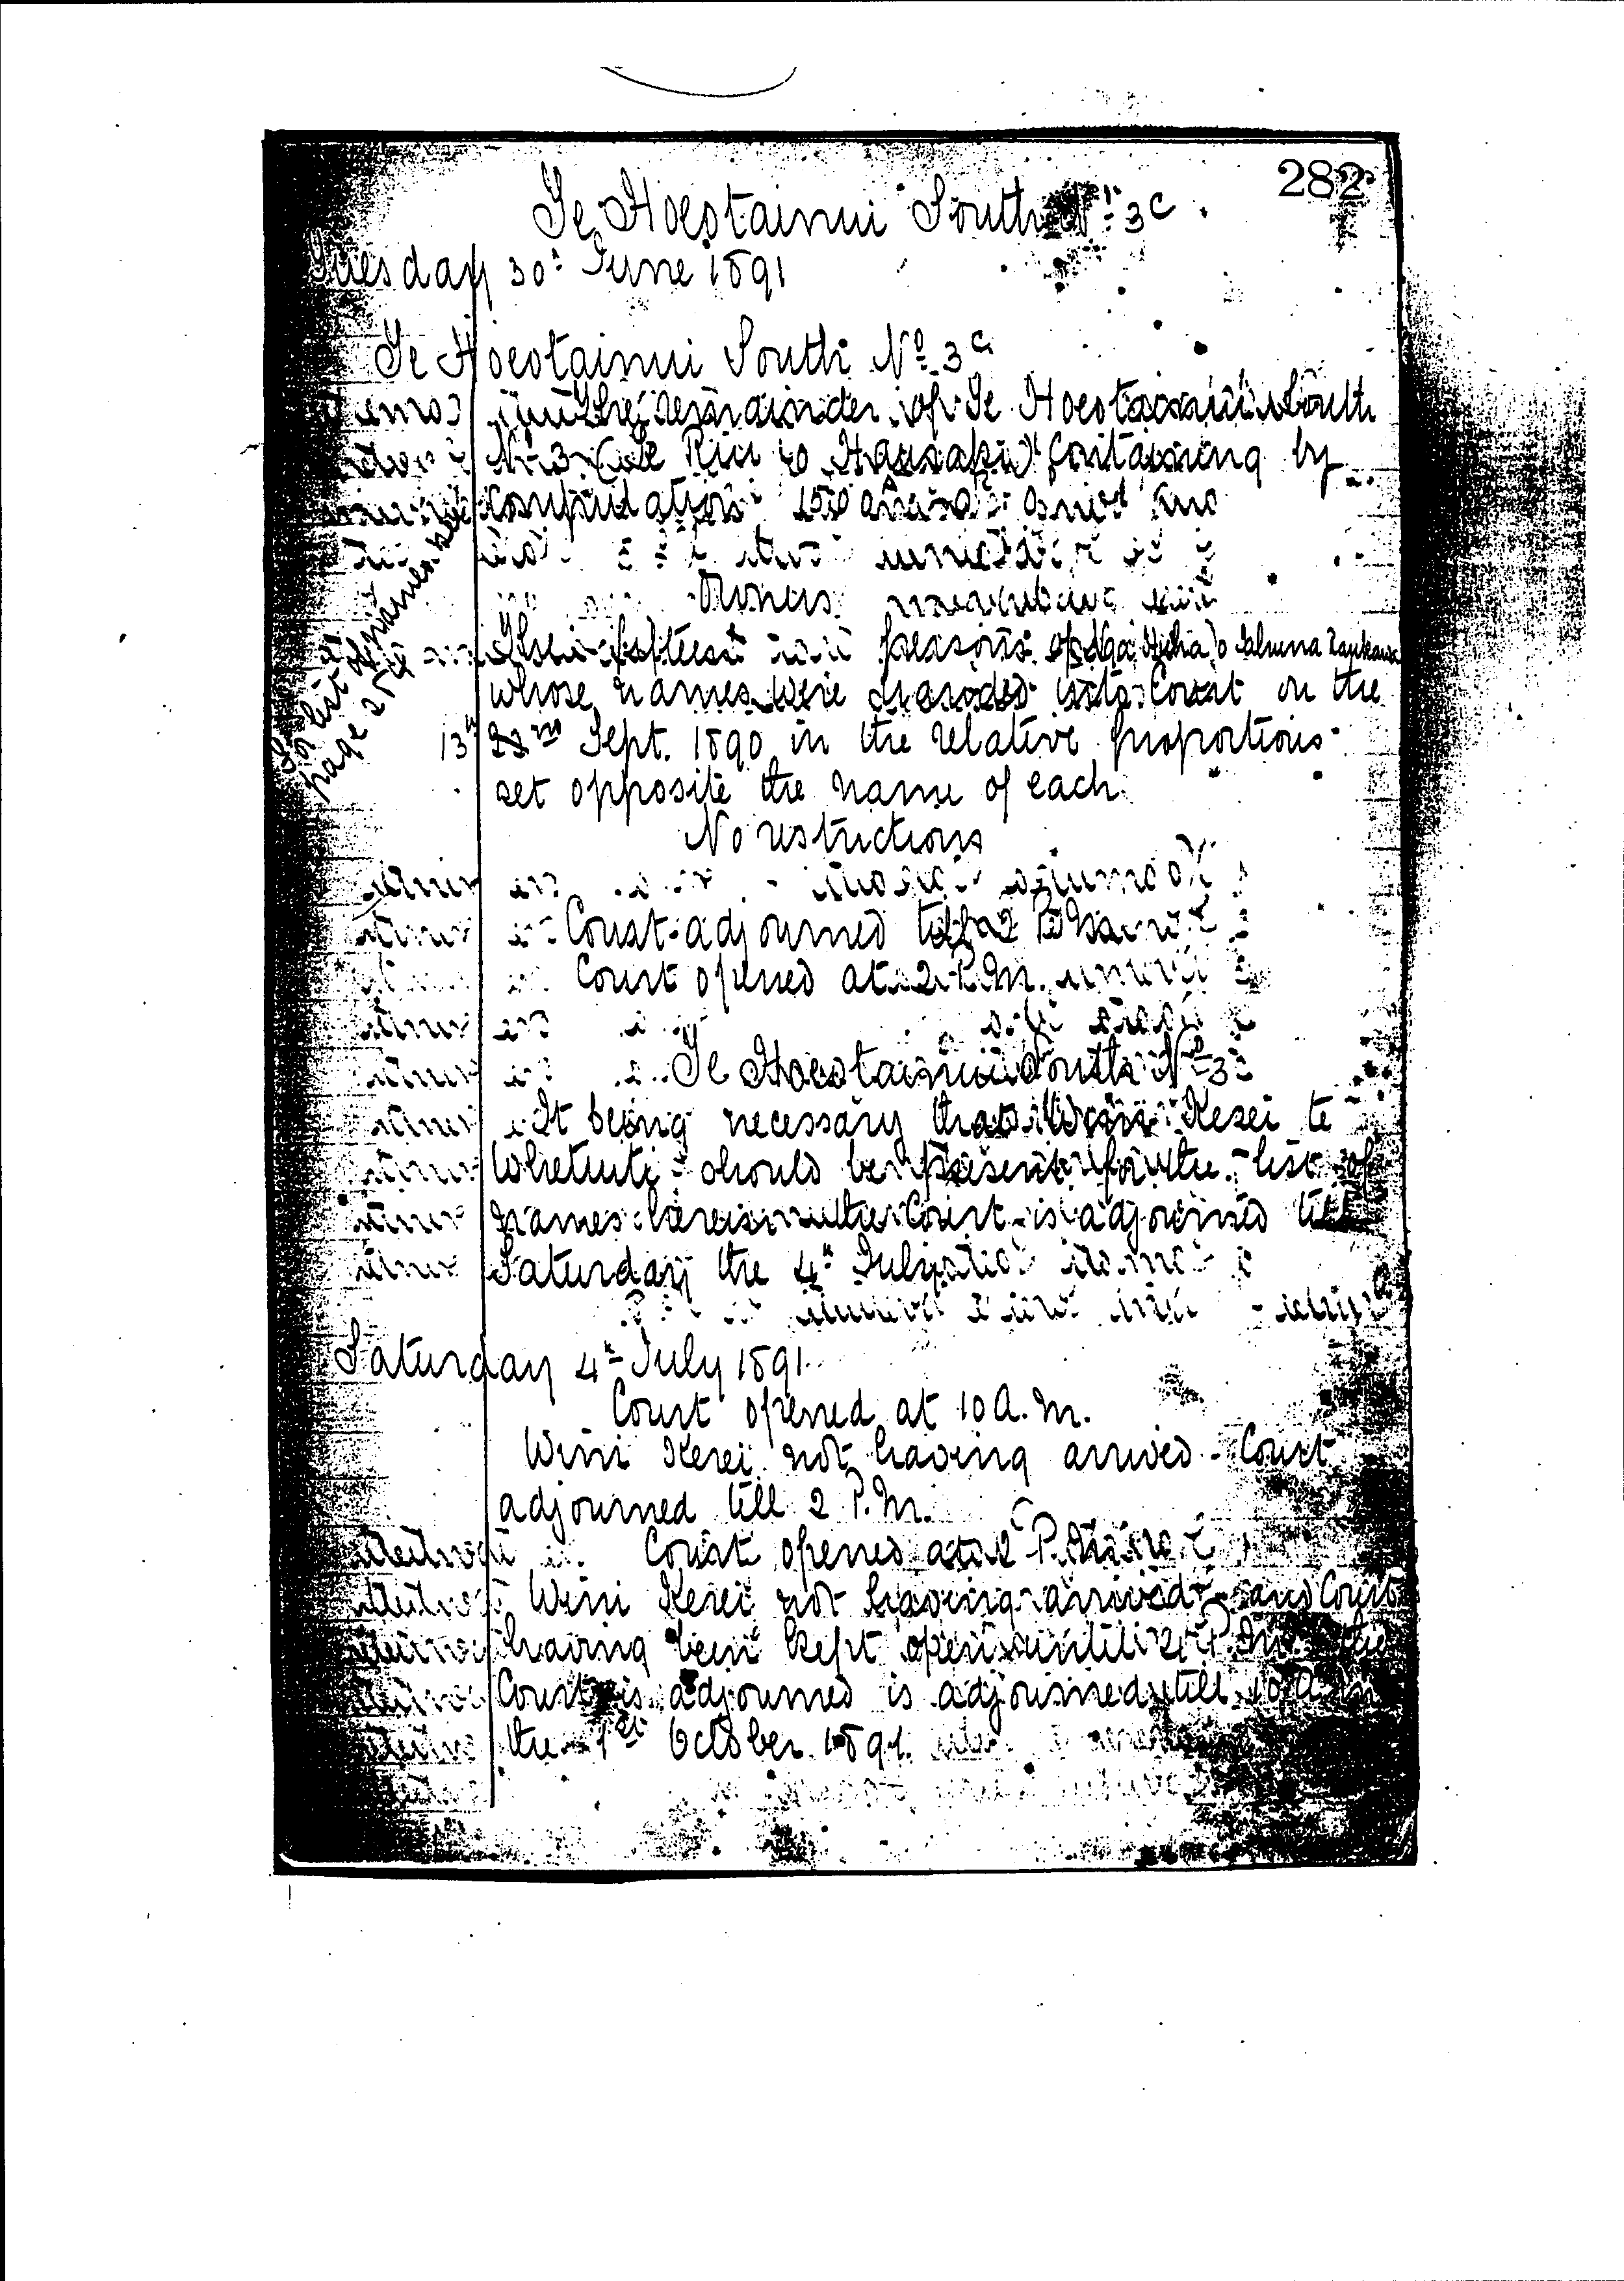 282
Te Hoeotainui South No 3C.
Tuesday 30th June 1891
Te Hoeotainui South No 3C
The remainder of Te Hoeotainui South
No 3 (Te Riu o Hauraki) containing by
computation 150 acres
Owners
The persons of Ngati
whose names were handed into Court on the
13th 23rd Sept. 1890 in the relative proportions
set opposite the name of each.
For list of names see
page 254
No restrictions
Court adjourned till 2 P.M.
Court opened at 2 P.M.
Te Hoeotainui South No 3
It being necessary that Wini Kerei te
Whetuiti should be present for the list of
names herein the Court is adjourned till
Saturday the 4th July
Saturday 4th July 1891
Court opened at 10 A.M.
Wini Kerei not having arrived - Court
adjourned till 2 P.M.
Court opened at 2 P.M.
Wini Kerei not having arrived - and Court
having been kept open until P.M. the
Court is adjourned is adjourned till 10 A.M.
the 1st October 1891.